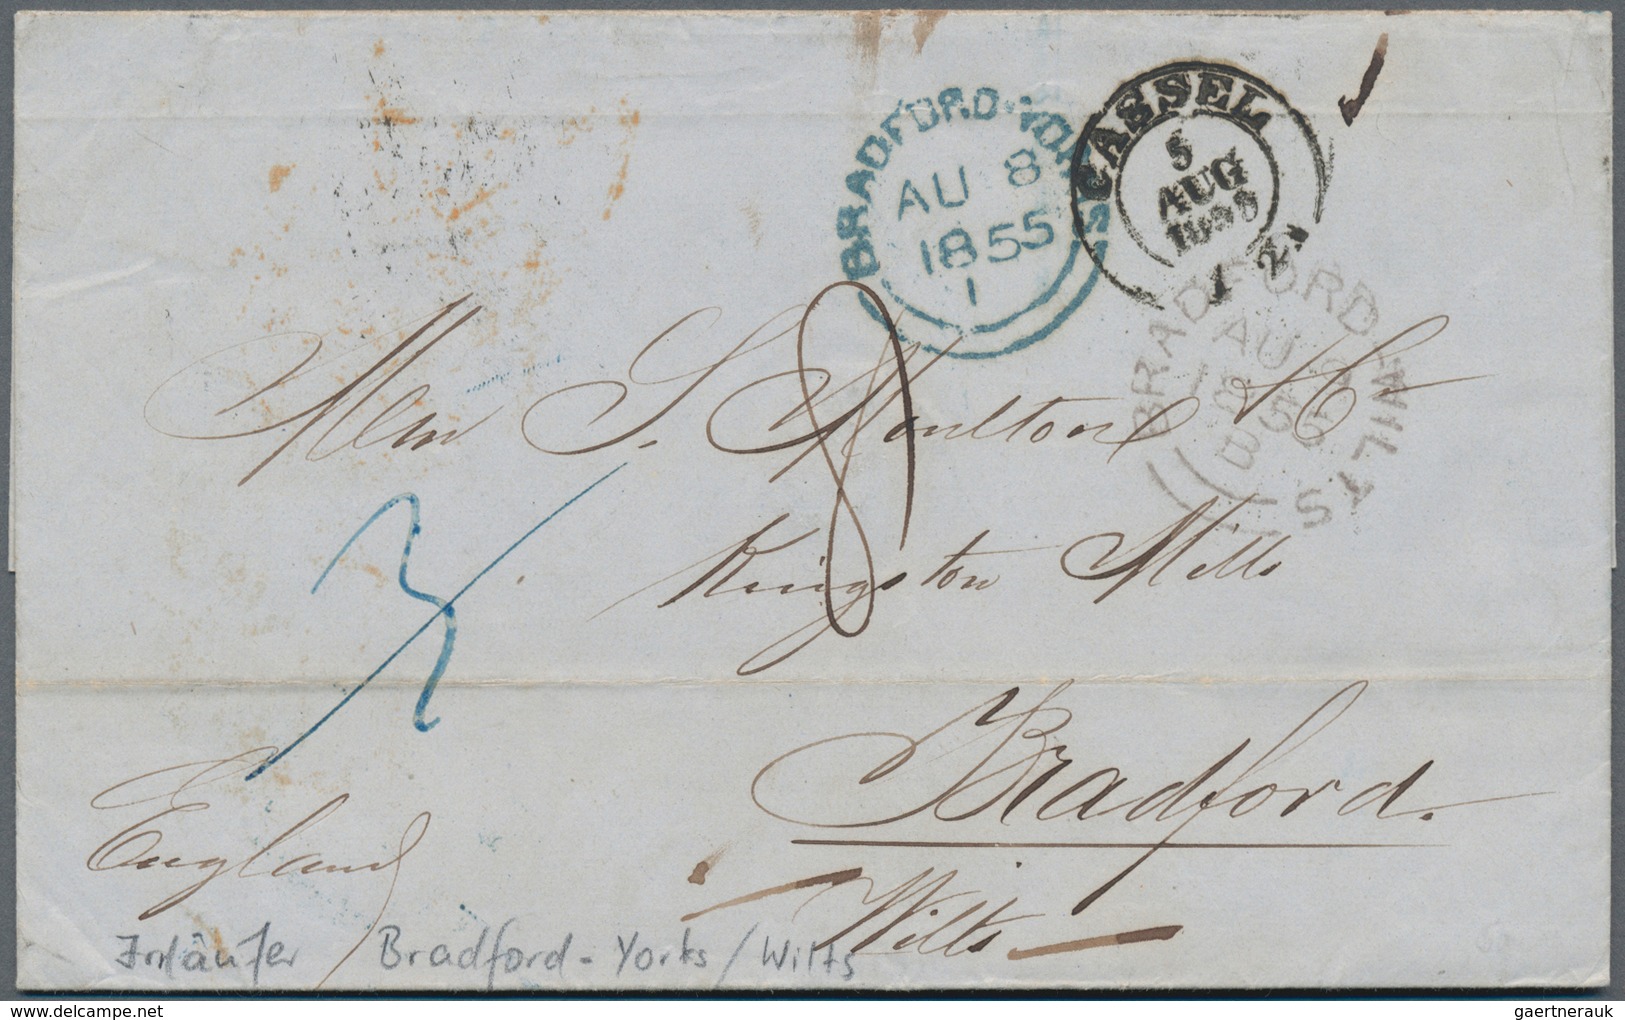 BRADFORD·YORKS
AU 8
1855
1
CASSEL
5
AUG
1855
1 2
BRADFORD-WILTS
AU 9
1855
B
8
S. Moulton & C
Kingston Mills
3
Bradford.
Wilts
England
Irrläufer Bradford - Yorks / Wilts
gaertnerauk